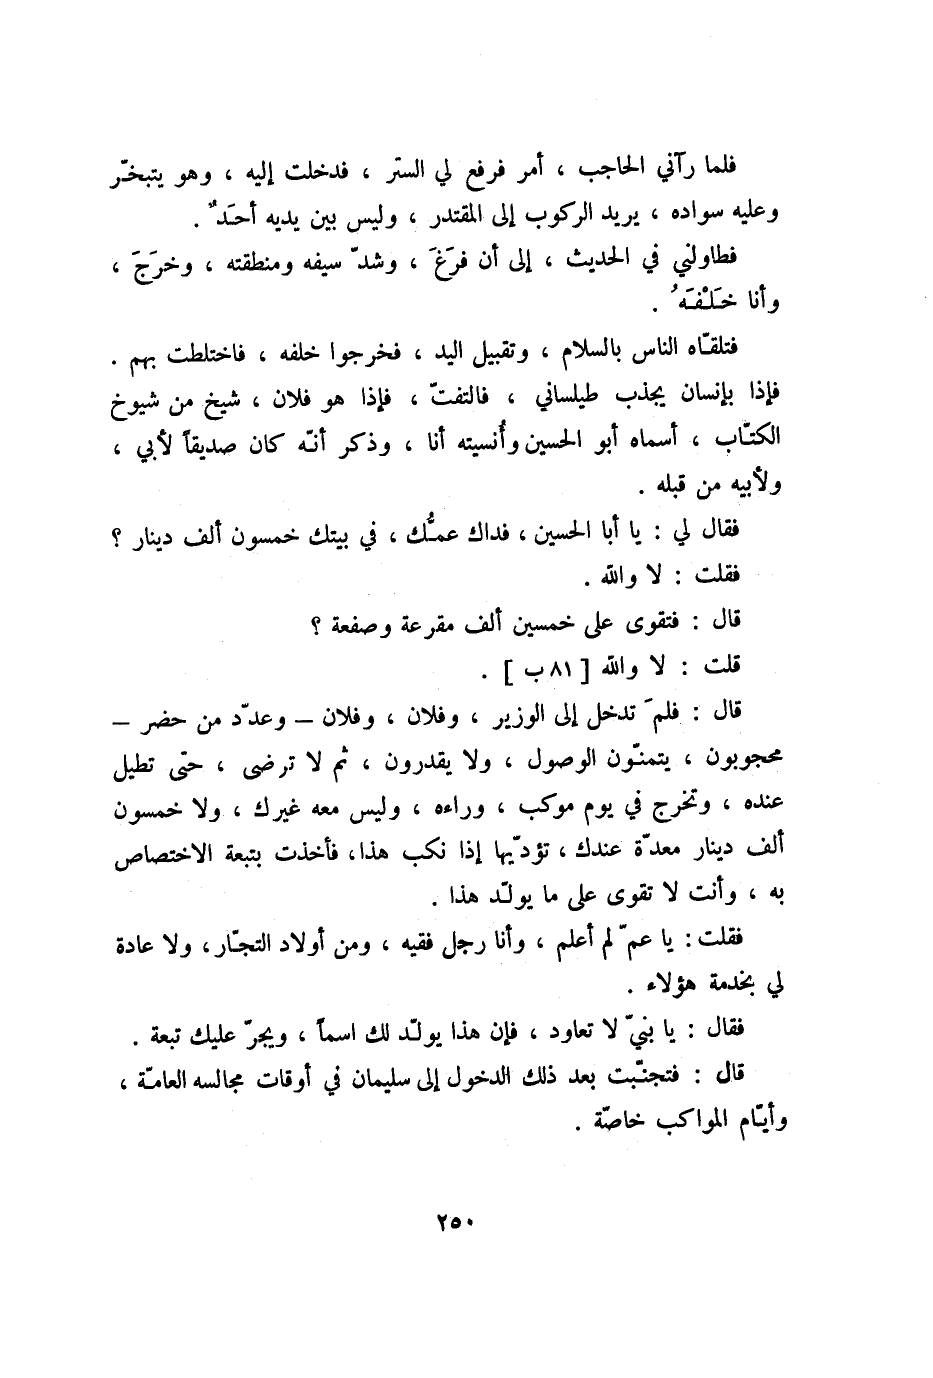 فلما رآني الحاجب ، أمر فرفع لي الستر ، فدخلت إليه ، وهو يتبخّر
وعليه سواده ، يريد الركوب إلى المقتدر ، وليس بين يديه أحَدٌ .
فطاولني في الحديث ، إلى أن فرَغَ ، وشدّ سيفه ومنطقته ، وخرَجَ ،
وأنا خَلْفَهُ .
فتلقّاه الناس بالسلام ، وتقبيل اليد ، فخرجوا خلفه ، فاختلطت بهم .
فإذا بإنسان يجذب طيلساني ، فالتفتّ ، فإذا هو فلان ، شيخ من شيوخ
الكتّاب ، أسماه أبو الحسين وأُنسيته أنا ، وذكر أنّه كان صديقاً لأبي ،
ولأبيه من قبله .
فقال لي : يا أبا الحسين ، فداك عمُّك ، في بيتك خمسون ألف دينار ؟
فقلت : لا والله .
قال : فتقوى على خمسين ألف مقرعة وصفعة ؟
قلت : لا والله [ ٨١ ب ] .
قال : فلمَ تدخل إلى الوزير ، وفلان ، وفلان – وعدّد من حضر –
محجوبون ، يتمنّون الوصول ، ولا يقدرون ، ثم لا ترضى ، حتّى تطيل
عنده ، وتخرج في يوم موكب ، وراءه ، وليس معه غيرك ، ولا خمسون
ألف دينار معدّة عندك ، تؤدّيها إذا نكب هذا ، فأخذت بتبعة الاختصاص
به ، وأنت لا تقوى على ما يولّد هذا .
فقلت : يا عمّ لم أعلم ، وأنا رجل فقيه ، ومن أولاد التجّار ، ولا عادة
لي بخدمة هؤلاء .
فقال : يا بنيّ لا تعاود ، فإن هذا يولّد لك اسماً ، ويجرّ عليك تبعة .
قال : فتجنّبت بعد ذلك الدخول إلى سليمان في أوقات مجالسه العامّة ،
وأيّام المواكب خاصّة .
٢٥٠